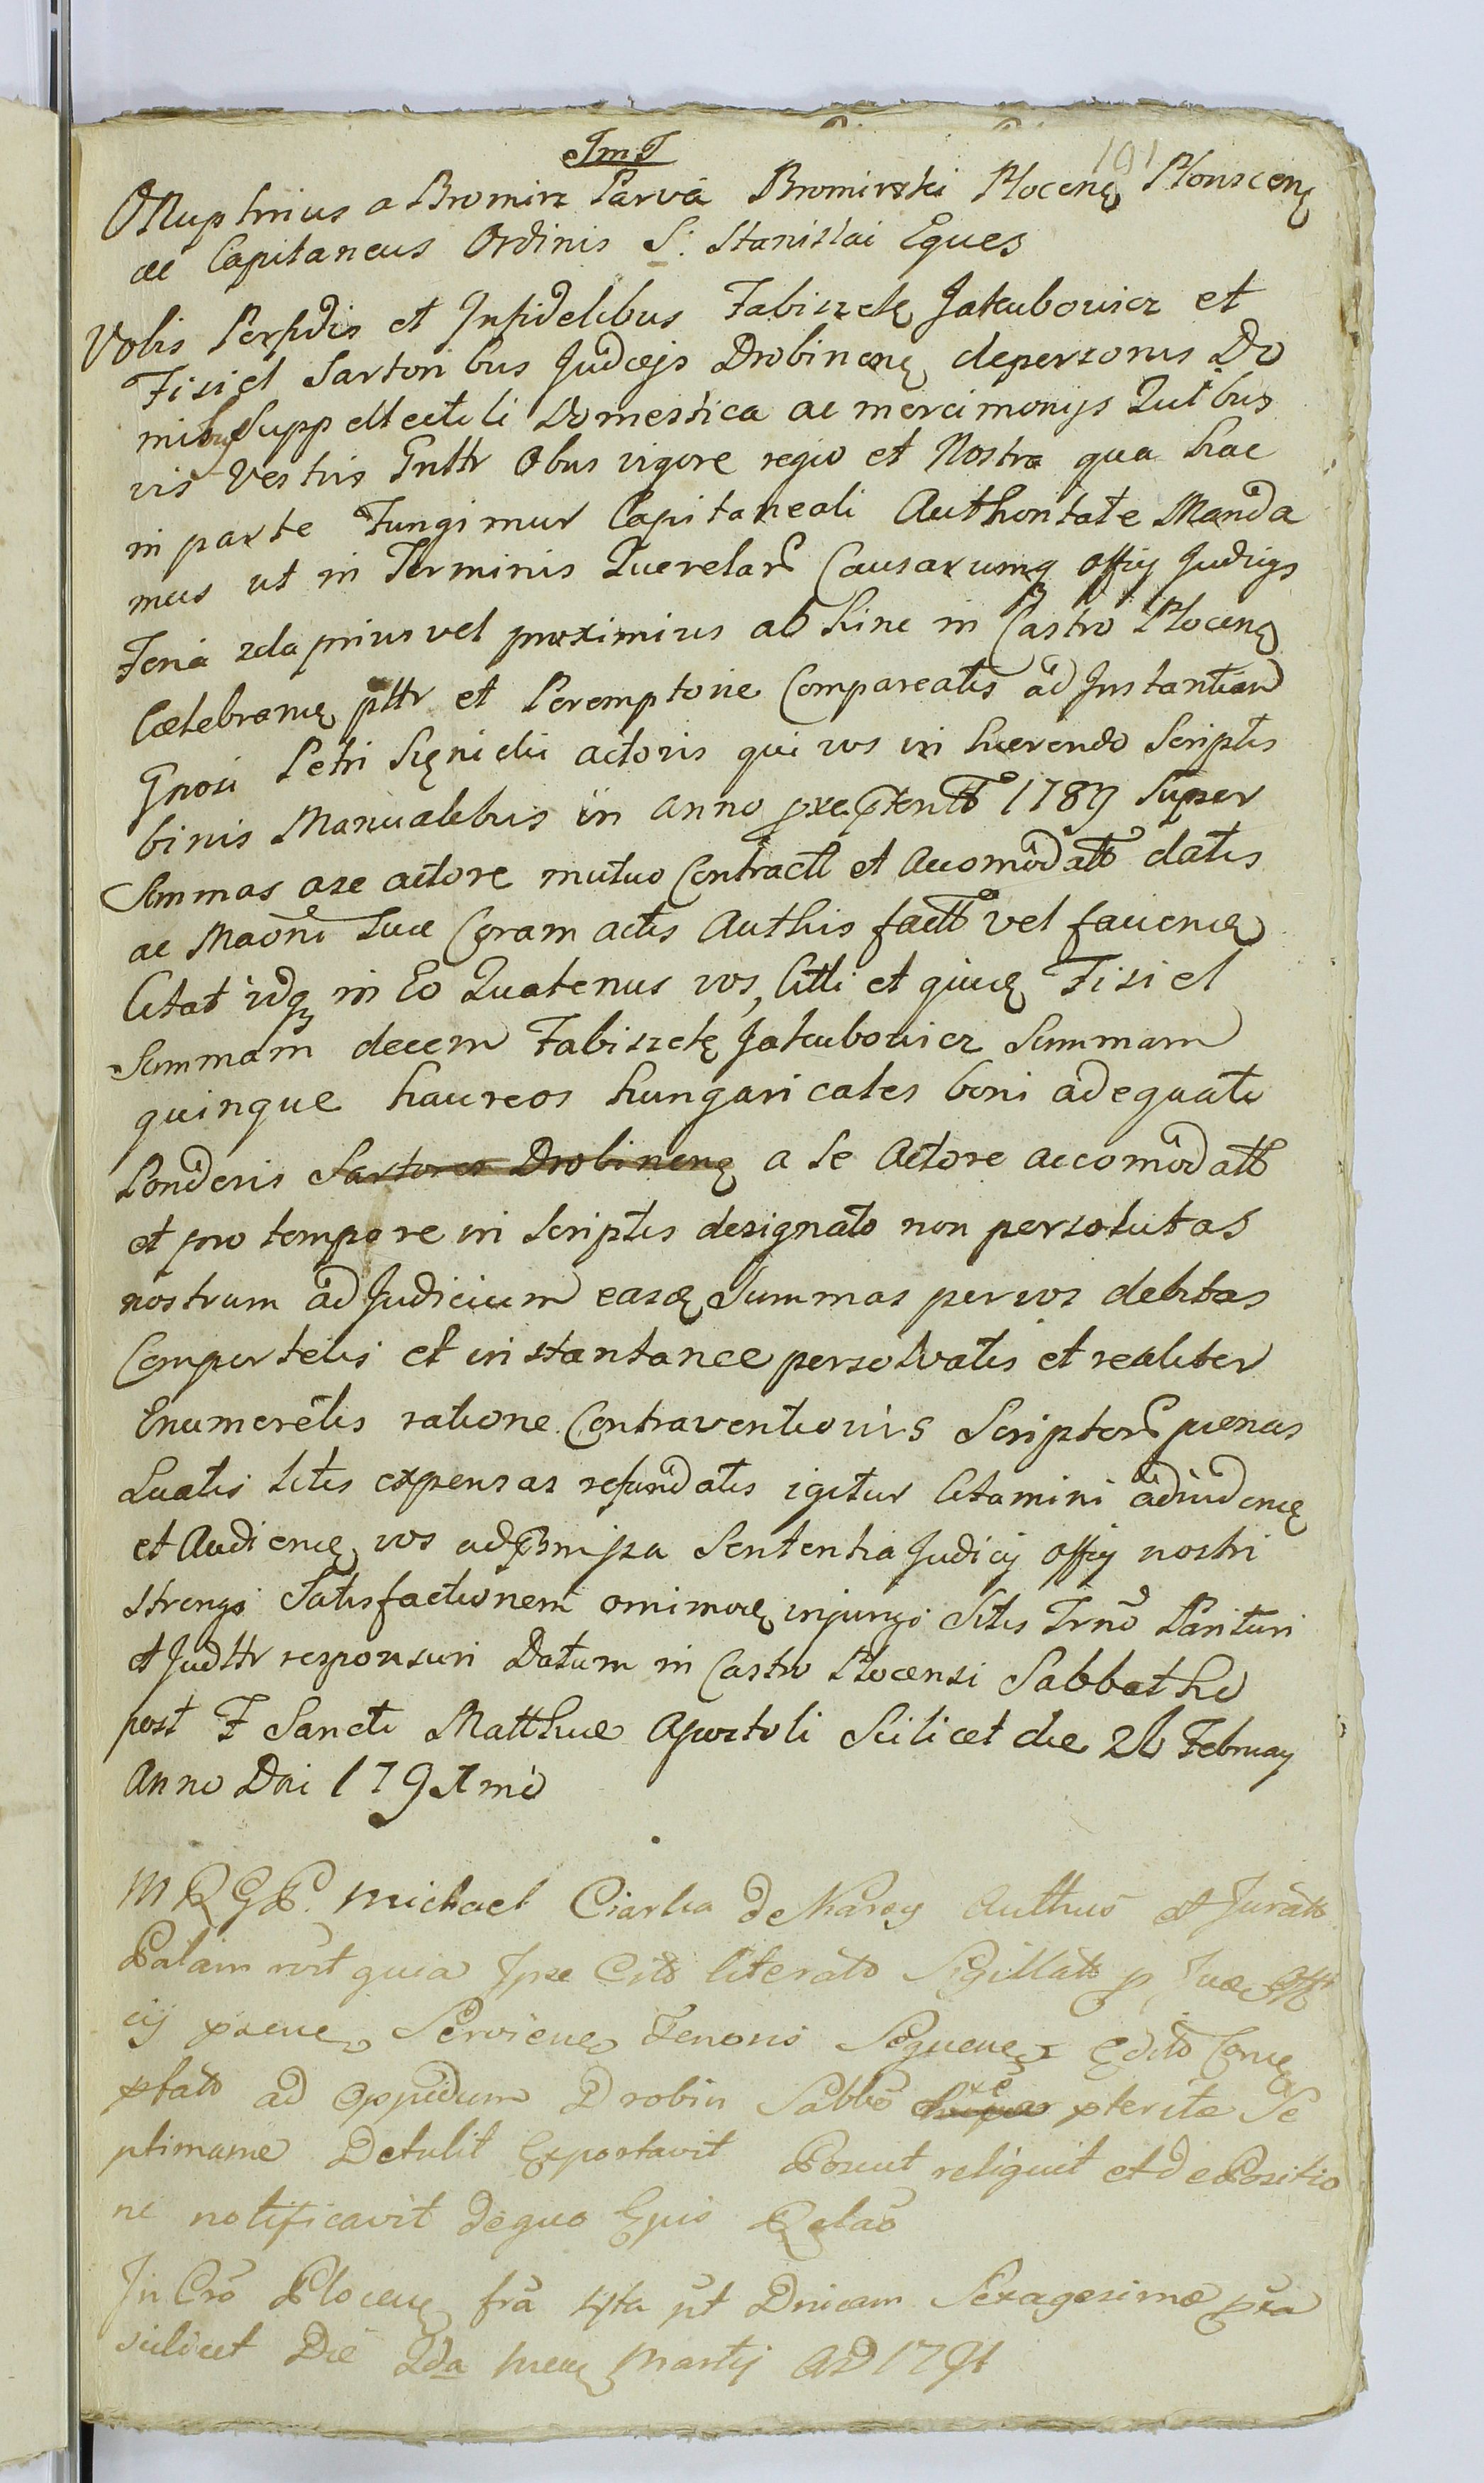 JmJ
191
ONuphrius a Bromirz Parva Bromirski Plocenę Plonscenę
ac Capitaneus Ordinis S: Stanislai Eques
Vobis Perfidis et Jnfidelibus Fabiszek Jakubowicz et
Fisiel Sartoribus Judæjs Drobinenę depersonis Do
mibusq Suppellectili Domestica ac mercimonijs Quibus
vis Vestris Gnttr Obus vigore regio et Nostra qua hac
in parte Fungimur Capitaneali Authoritate Manda
mus ut in Terminis Querelar Causarumq officij Judicys
Feria 2da prius vel proximius ab hinc in Castro Plocenę
Celebranę pttr et Peremptorie Compareatis ad Jnstantiam
Gnosi Petri actoris qui vos in hœrendo Scriptis
binis Manualibus in anno 1789 Super
Summas a se actore mutuo Contractt et Accomodatt datis
ac Maõni Suæ Coram actis Authis factt vel faciendę
Citat idq in Eo Quatenus vos, Citti et Fisiel
Summam decem Fabiszek Jakubowicz Summam
quinque haureos hungaricales boni adequati
Ponderis Sartores Drobinenę a Se Actore accomodatt
et pro tempore in Scriptis designato non persolutas
nostrum ad Judicium easdę Summas per vos debitas
Comportetis et instantanee persolvatis et realiter
Enumeretis ratione Contraventionis Scriptor pœnas
Luatis litis expensas refundatis igitur Citamini ad videndę
et Audiendę vos ad præmissa Sententia Judicij officij nostri
stringi Satisfactionem omimodę injungi Sitis Trno Parituri
et Judttr responsuri Datum in Castro Plocensi Sabbatho
post F Sancti Matthiæ Apostoli Scilicet die 26 February
Anno Dni 1791mo
M R G P. Michael Ciarka de Karsy Authus et Juratt
Palam rvt quia Jpse Citt literatt Sigillatt p Judę Offi
cij præsenę Serviendę Tenoris Sequendę Edito
ptatt ad Oppidum Drobin Sabbo pterite Se
ptimanæ Detulit Exportavit Posuit reliquit et de Positio
ne notificavit dequo Ejus Relaõ
Jn Cro Plocenę fra 4ta pt Dnicam Sexagesimæ pxa
scilicet Die 2da Mensę Martij AD 1791